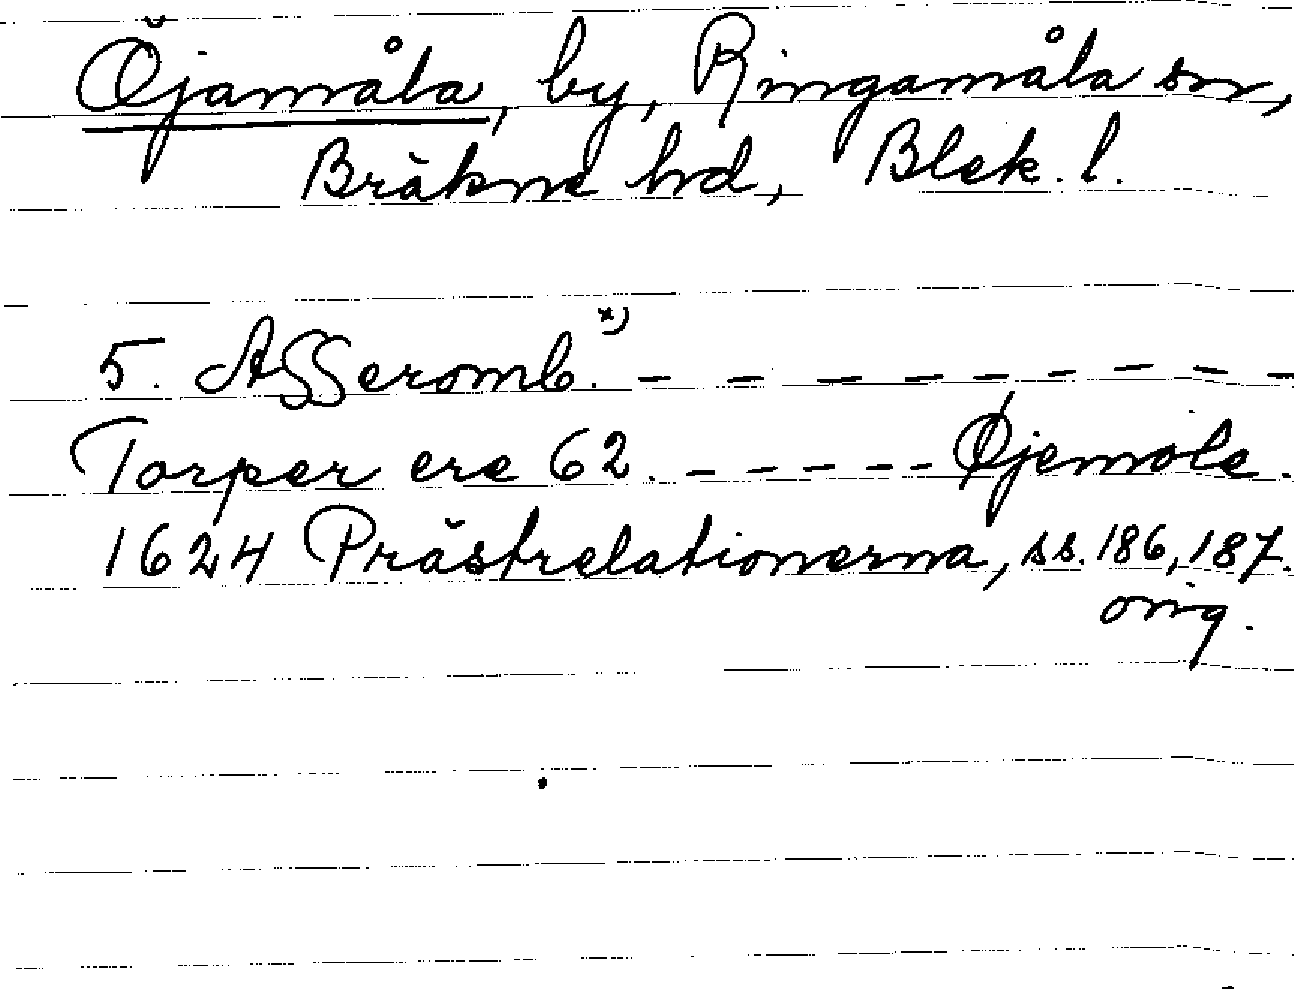 Öjamåla, by, Ringamåla sn,
Bräkne hd, Blek. l.
5. Asseromb. x) - - - - - - - -
Torper ere 62. - - - - - Øjemole.
1624 Prästrelationerna, ss. 186, 187.
orig.